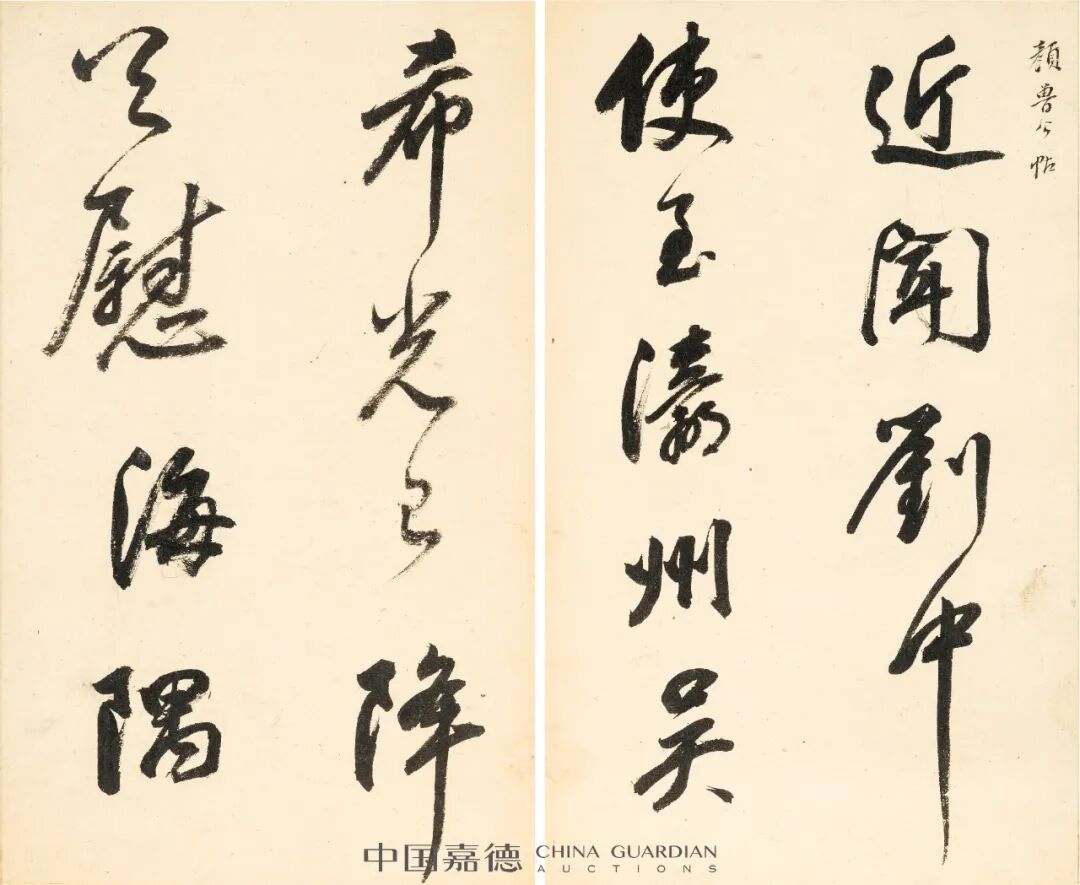 顔魯公帖
近聞劉中
使至瀛州吳
希光已降
足慰海隅
中国嘉德 CHINA GUARDIAN
AUCTIONS